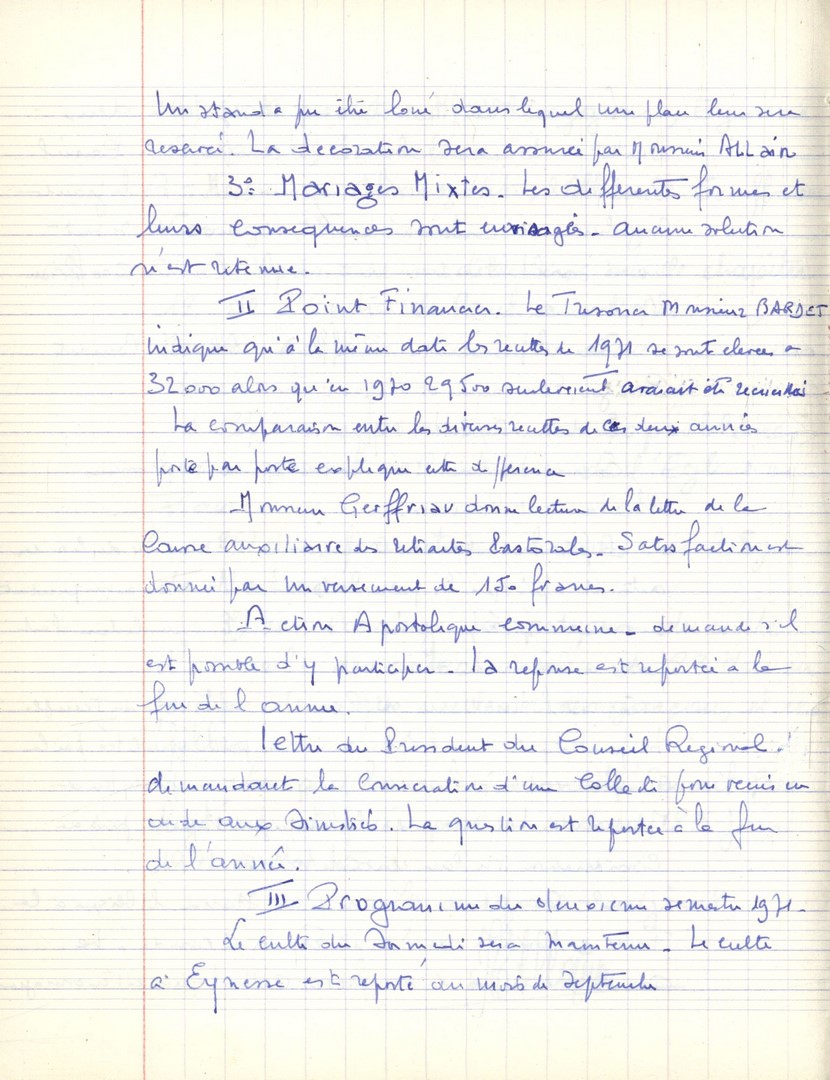 Un stand a pu être loué dans lequel une place leur sera
reservé. La decoration sera assurée par Monsieur ALLAIN
3°: Mariages Mixtes. Les differentes formes et
leurs consequences sont envisagés. Aucune solution
n'est retenue.
II Point Financier. Le Tresorier Monsieur BARDET
indique qu'à la même date les recettes de 1971 se sont elevees a
32000 alors qu'en 1970 29500 seulement avaient été recueillis
La comparaison entre les diverses recettes de ces deux années
poste par poste explique cette difference
Monsieur Gerffriau donne lecture de la lettre de la
Caisse auxiliaire des retraites Pastorales. Satisfaction est
donnée par un versement de 150 francs.
Action Apostolique commune - demande s'il
est possible d'y participer. la reponse est reportée a la
fin de l'annee.
lettre du President du Conseil Regional
demandant la Consecration d'une Collecte pour venir en
aide aux Sinistrés. La question est reportee à la fin
de l'année.
III Programme du deuxieme semestre 1971.
Le culte du Samedi sera maintenu. Le culte
a Eynesse est reporté au mois de septembre